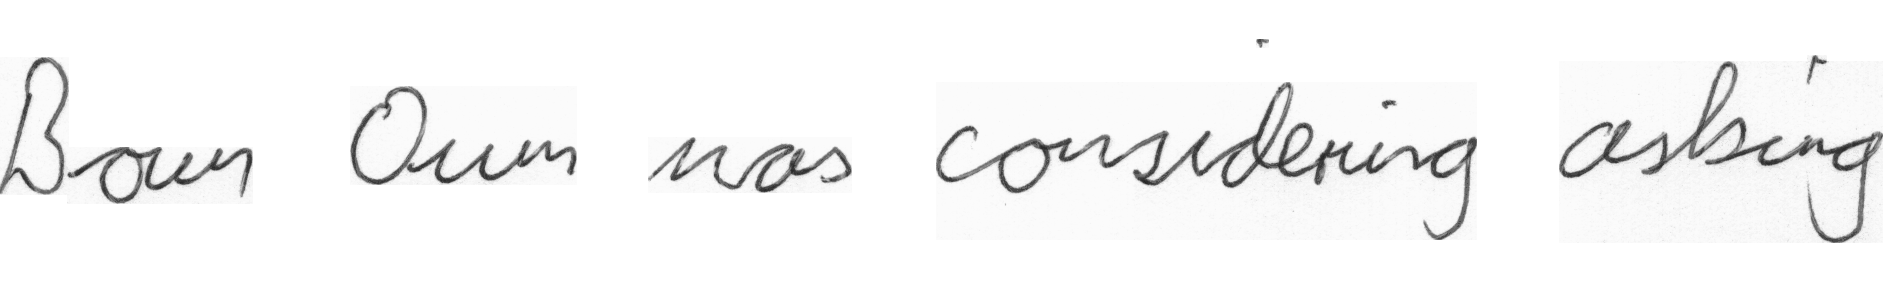 Boun Oum was considering asking